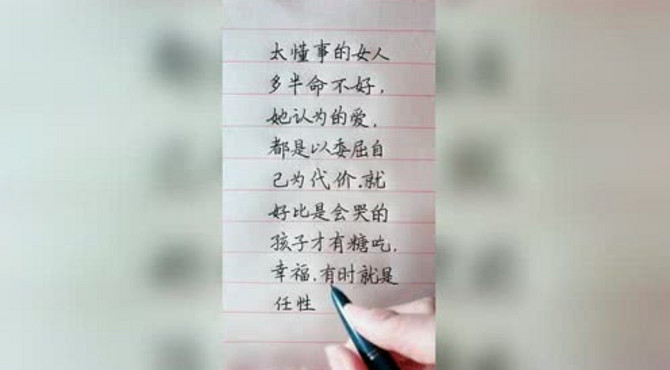 太懂事的女人
多半命不好，
她认为的爱，
都是以委屈自
己为代价.就
好比是会哭的
孩子才有糖吃.
幸福.有时就是
任性